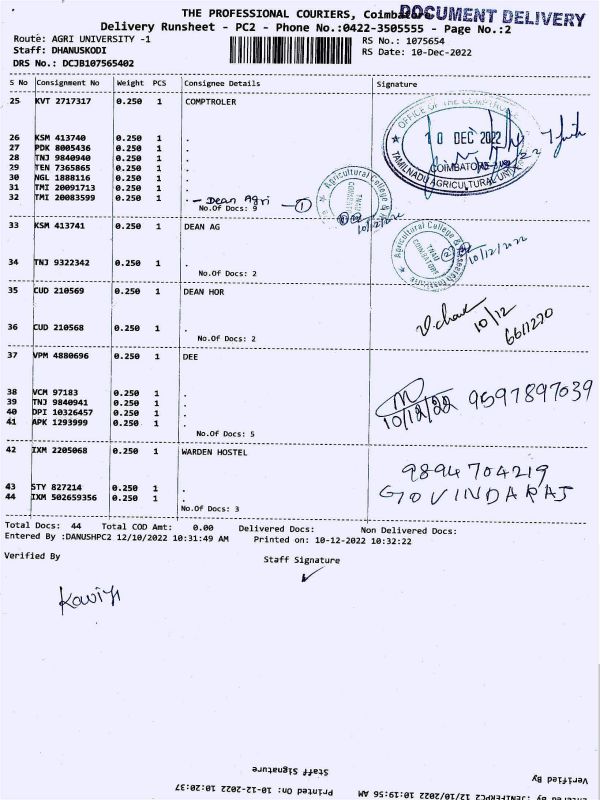 THE PROFESSIONAL COURIERS, Coimbatore
DOCUMENT DELIVERY
Delivery Runsheet - PC2 - Phone No.:0422-3505555 - Page No.:2
Route: AGRI UNIVERSITY -1
RS No.: 1075654
Staff: DHANUSKODI
RS Date: 10-Dec-2022
DRS No.: DCJB107565402
S No Consignment No Weight PCS Consignee Details Signature
25 KVT 2717317 0.250 1 COMPTROLER
26 KSM 413740 0.250 1 .
27 PDK 8005436 0.250 1 .
28 TNJ 9840940 0.250 1 .
29 TEN 7365865 0.250 1 .
30 NGL 1888116 0.250 1 .
31 TMI 20091713 0.250 1 .
32 TMI 20083599 0.250 1 . - Dean Agri - 1
No.Of Docs: 9
OFFICE OF THE COMPTROLLER
10 DEC 2022
COIMBATORE
TAMILNADU AGRICULTURAL UNIV
Agricultural College &
TNAU
COIMBATORE
10/12/22
33 KSM 413741 0.250 1 DEAN AG
34 TNJ 9322342 0.250 1 .
No.Of Docs: 2
Agricultural College & Research Institute
TNAU
COIMBATORE
10/12/2022
35 CUD 210569 0.250 1 DEAN HOR
36 CUD 210568 0.250 1 .
No.Of Docs: 2
10/12
6611270
37 VPM 4880696 0.250 1 DEE
38 VCM 97183 0.250 1 .
39 TNJ 9840941 0.250 1 .
40 DPI 10326457 0.250 1 .
41 APK 1293999 0.250 1 .
No.Of Docs: 5
10/12/22 9597897039
42 IXM 2205068 0.250 1 WARDEN HOSTEL
43 STY 827214 0.250 1 .
44 IXM 502659356 0.250 1 .
No.Of Docs: 3
9894704219
GOVINDARAJ
Total Docs: 44 Total COD Amt: 0.00 Delivered Docs: Non Delivered Docs:
Entered By :DANUSHPC2 12/10/2022 10:31:49 AM Printed on: 10-12-2022 10:32:22
Verified By
Staff Signature
Staff Signature
Verified By
Printed on: 10-12-2022 10:20:37
Entered By :JENIFERPC2 12/10/2022 10:19:56 AM